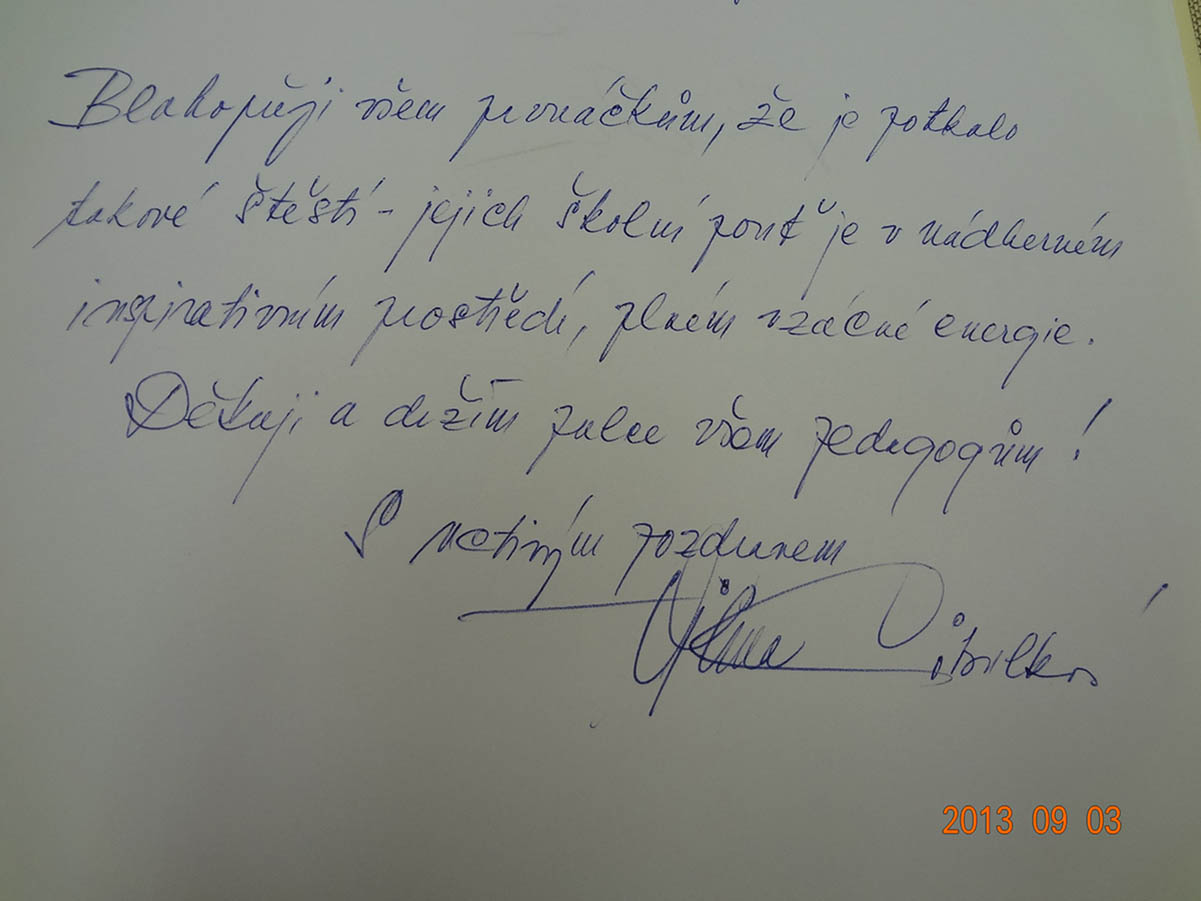 Blahopřeji všem prvňáčkům, že je potkalo
takové štěstí - jejich školní pouť je v nádherném
inspirativním prostředí, plném vzácné energie.
Děkuji a držím palce všem pedagogům!
S uctivým pozdravem
2013 09 03